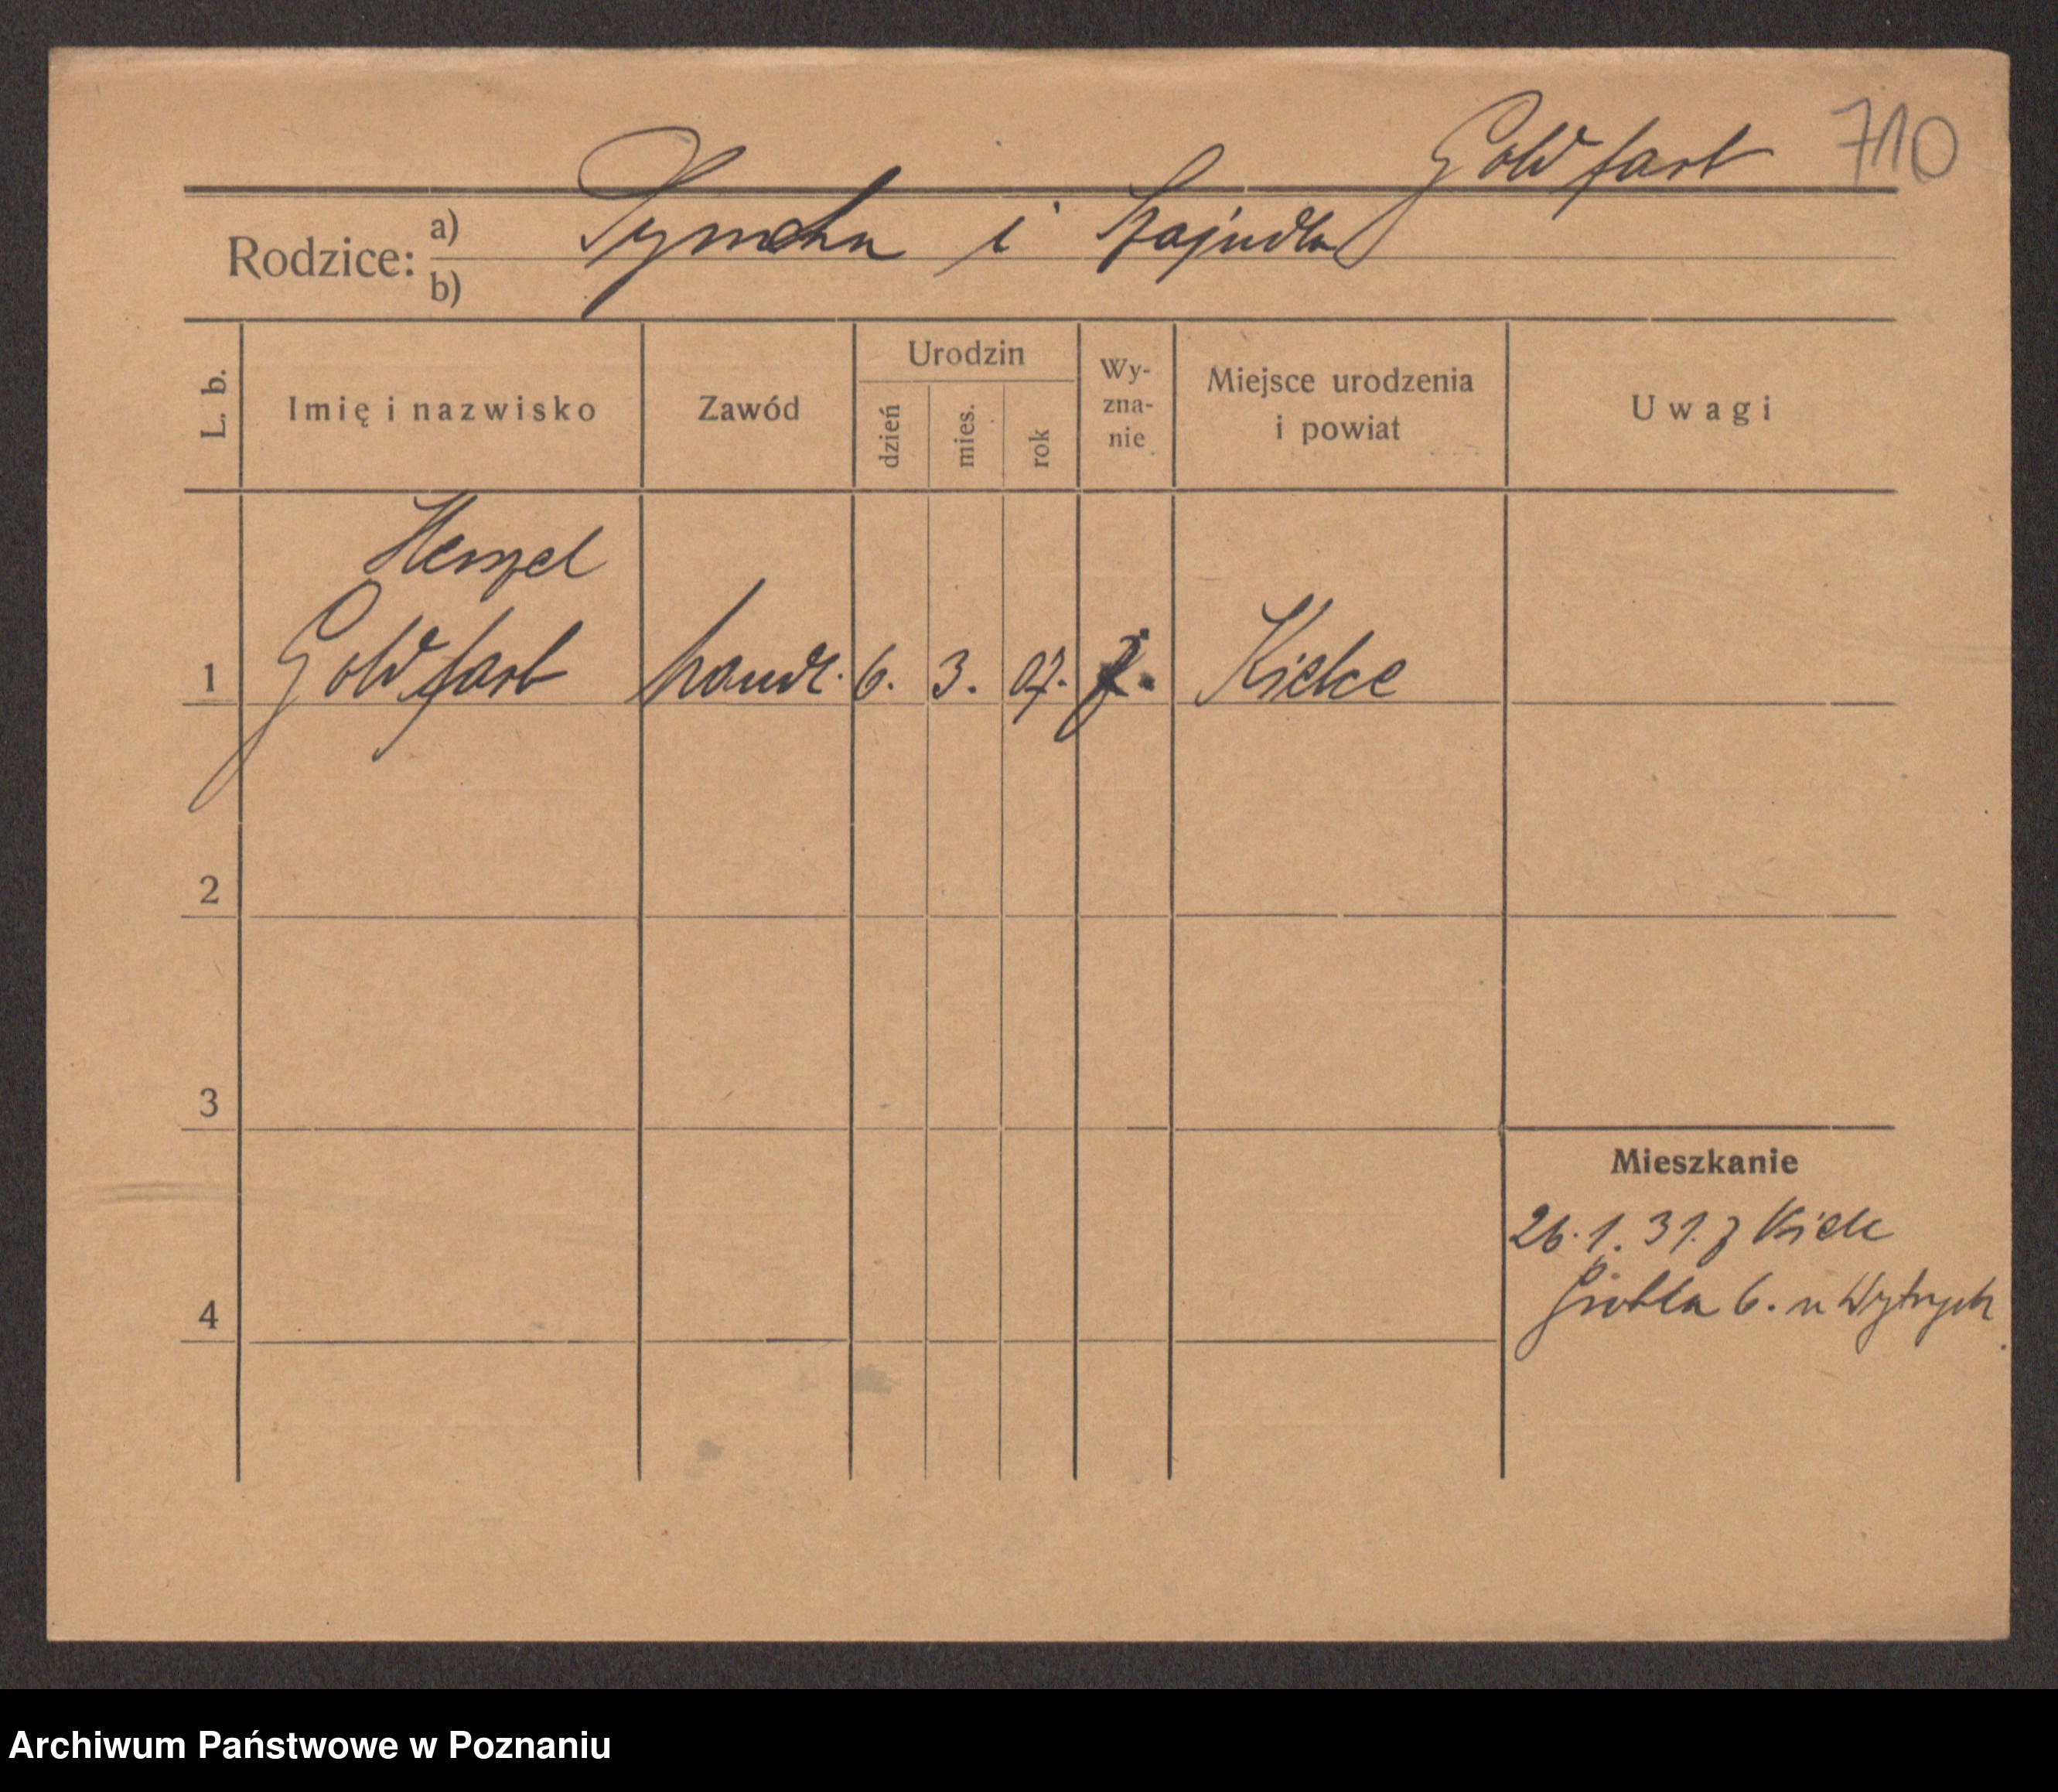 Goldfarb 710
Rodzice: a) Symcha i Szajndla
b)
L. b. Imię i nazwisko Zawód Urodzin dzień mies. rok Wy-zna-nie Miejsce urodzenia i powiat Uwagi
Herszel
1 Goldfarb handl. 6. 3. 07. Kielce
2
3
Mieszkanie
26.1.31. z Kielc
4 Grobla 6. u Wytrych
Archiwum Państwowe w Poznaniu